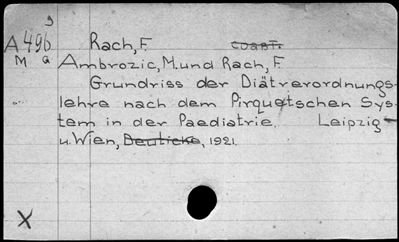 9
A 496 Rach, F. coast.
M a Ambrozic, M. und Rach, F.
Grundriss der Diätverordnungs-
lehre nach dem Pirquetschen Sys-
tem in der Paediatrie. Leipzig
u. Wien, Deuticke, 1921.
X